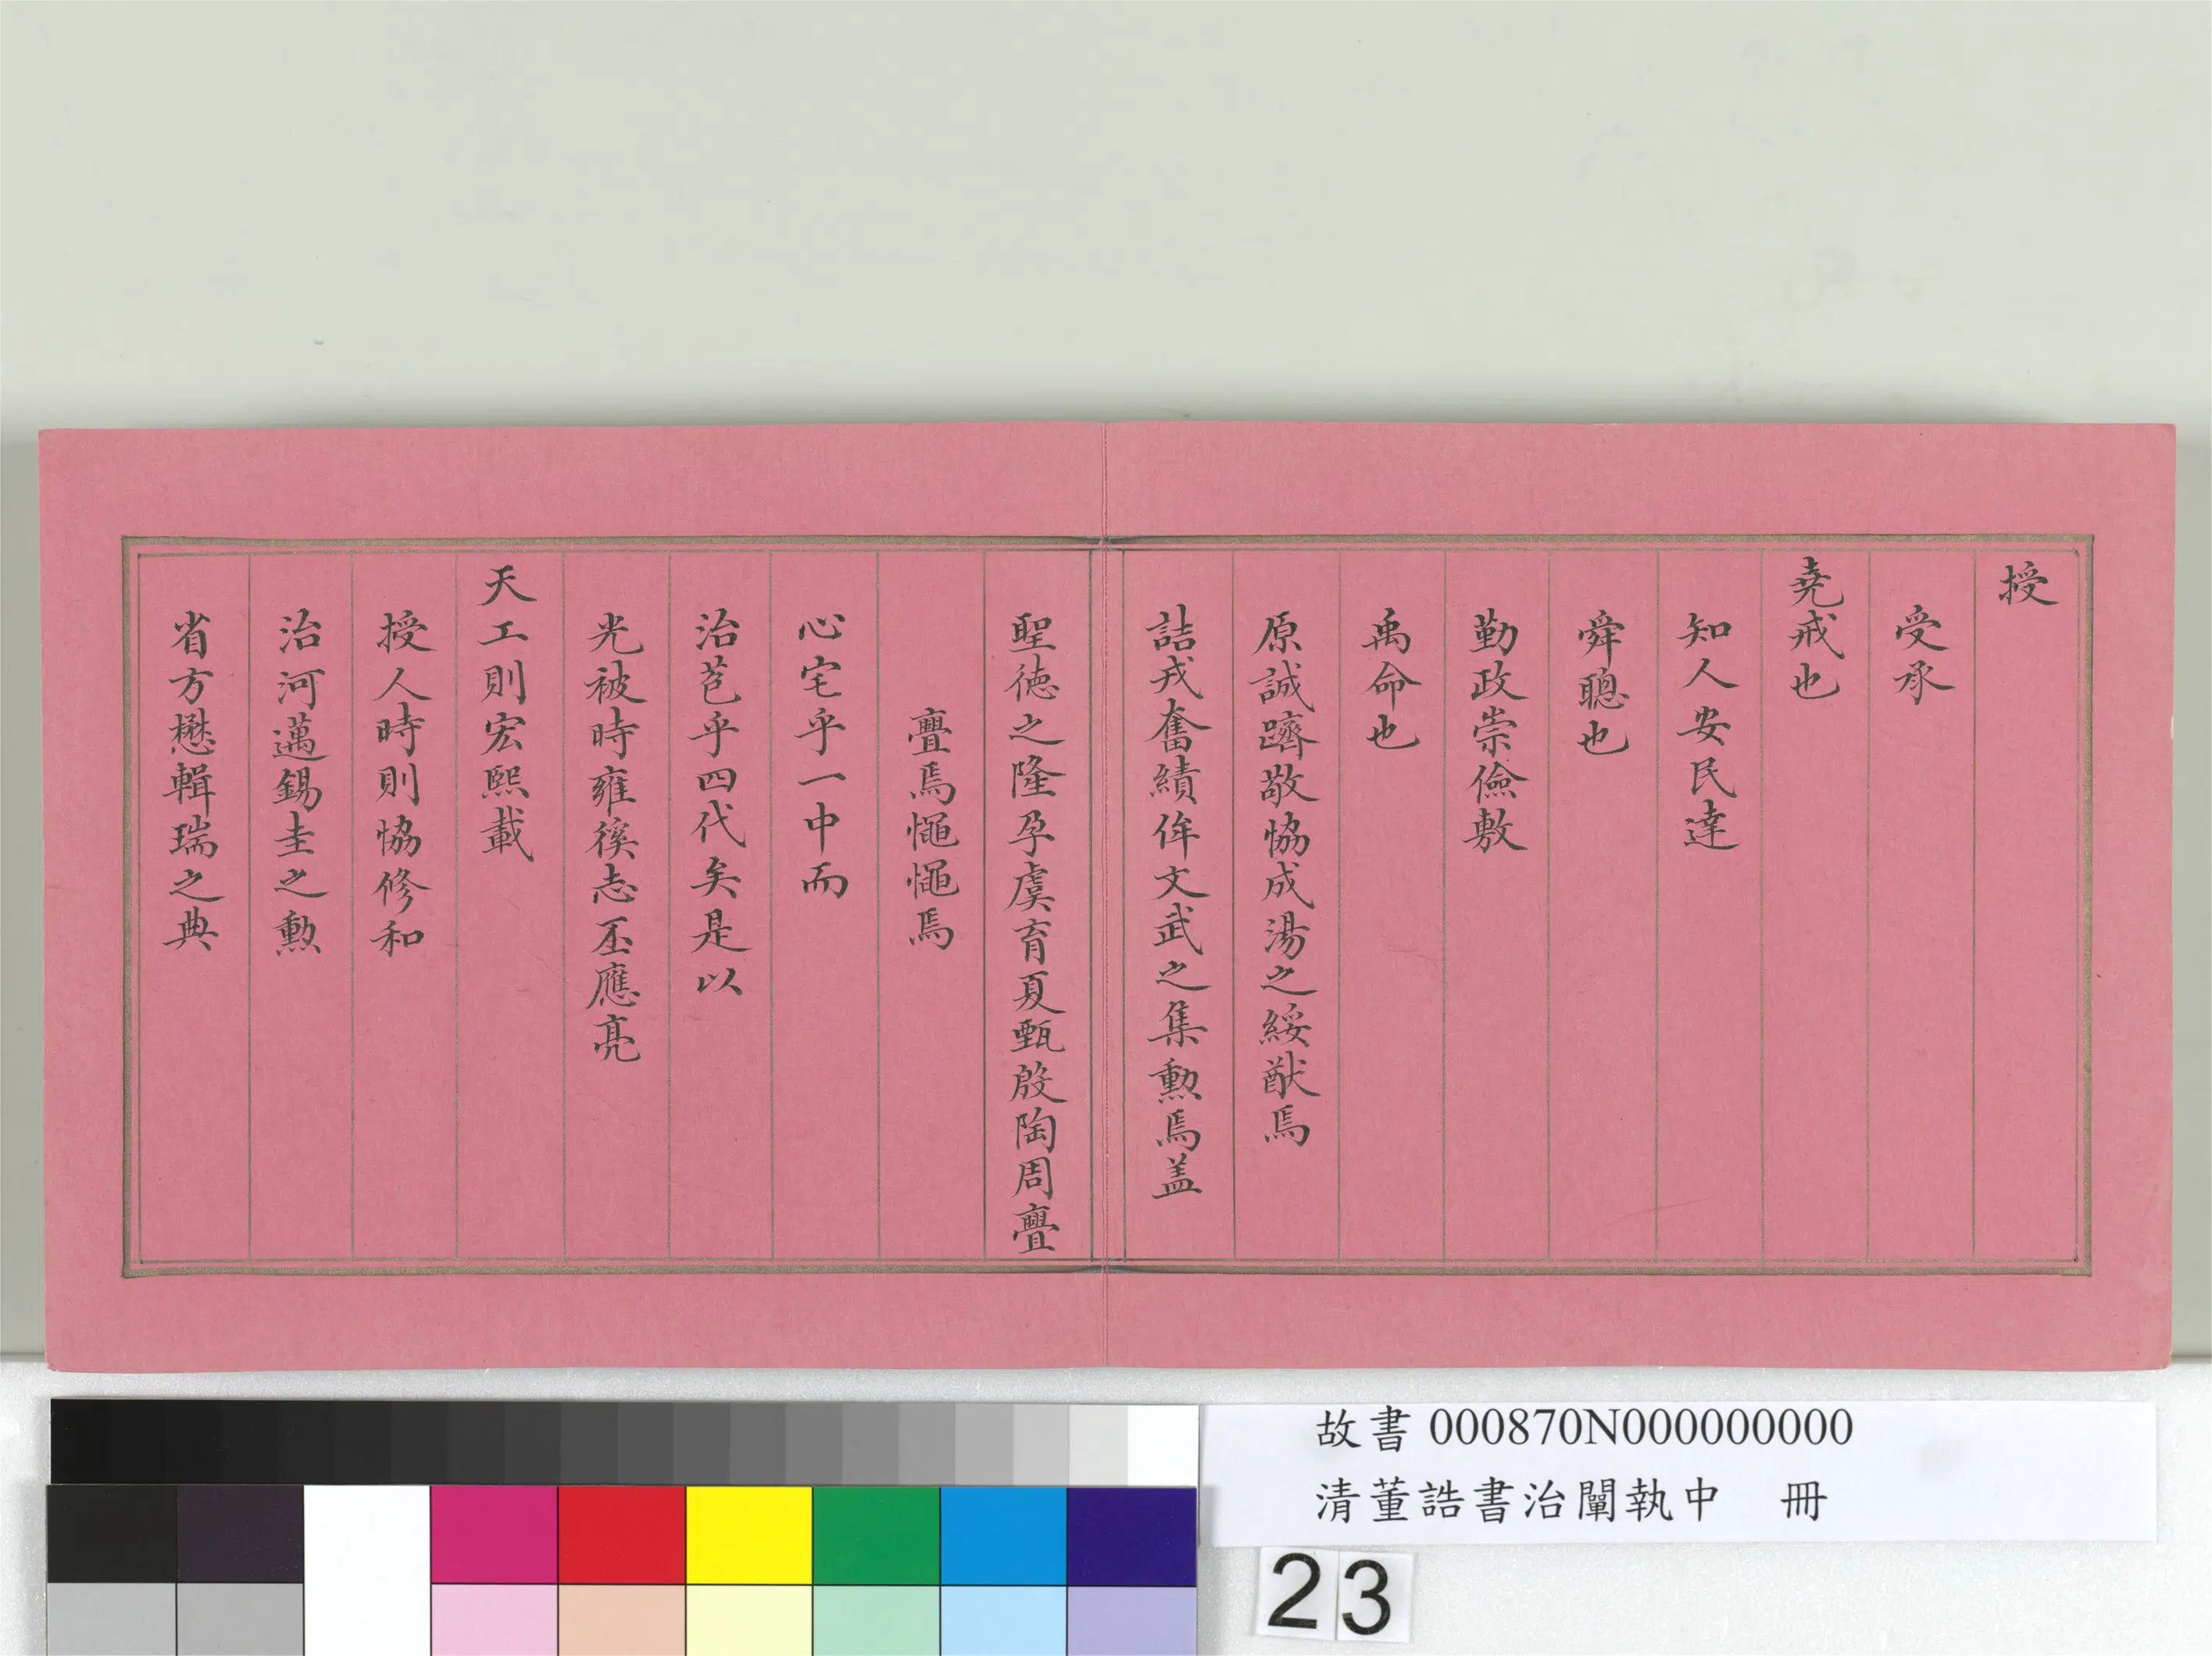 授
受承
堯戒也
知人安民達
舜聰也
勤政崇儉敷
禹命也
原誠躋敬恊成湯之綏猷焉
詰戎奮績侔文武之集勲焉盖
聖徳之隆孕虞育夏甄殷陶周亹
亹焉憴憴焉
心宅乎一中而
治苞乎四代矣是以
光被時雍徯志丕應亮
天工則宏熙載
授人時則恊修和
治河邁錫圭之勲
省方懋輯瑞之典
故書 000870N000000000
清董誥書治闡執中　冊
23